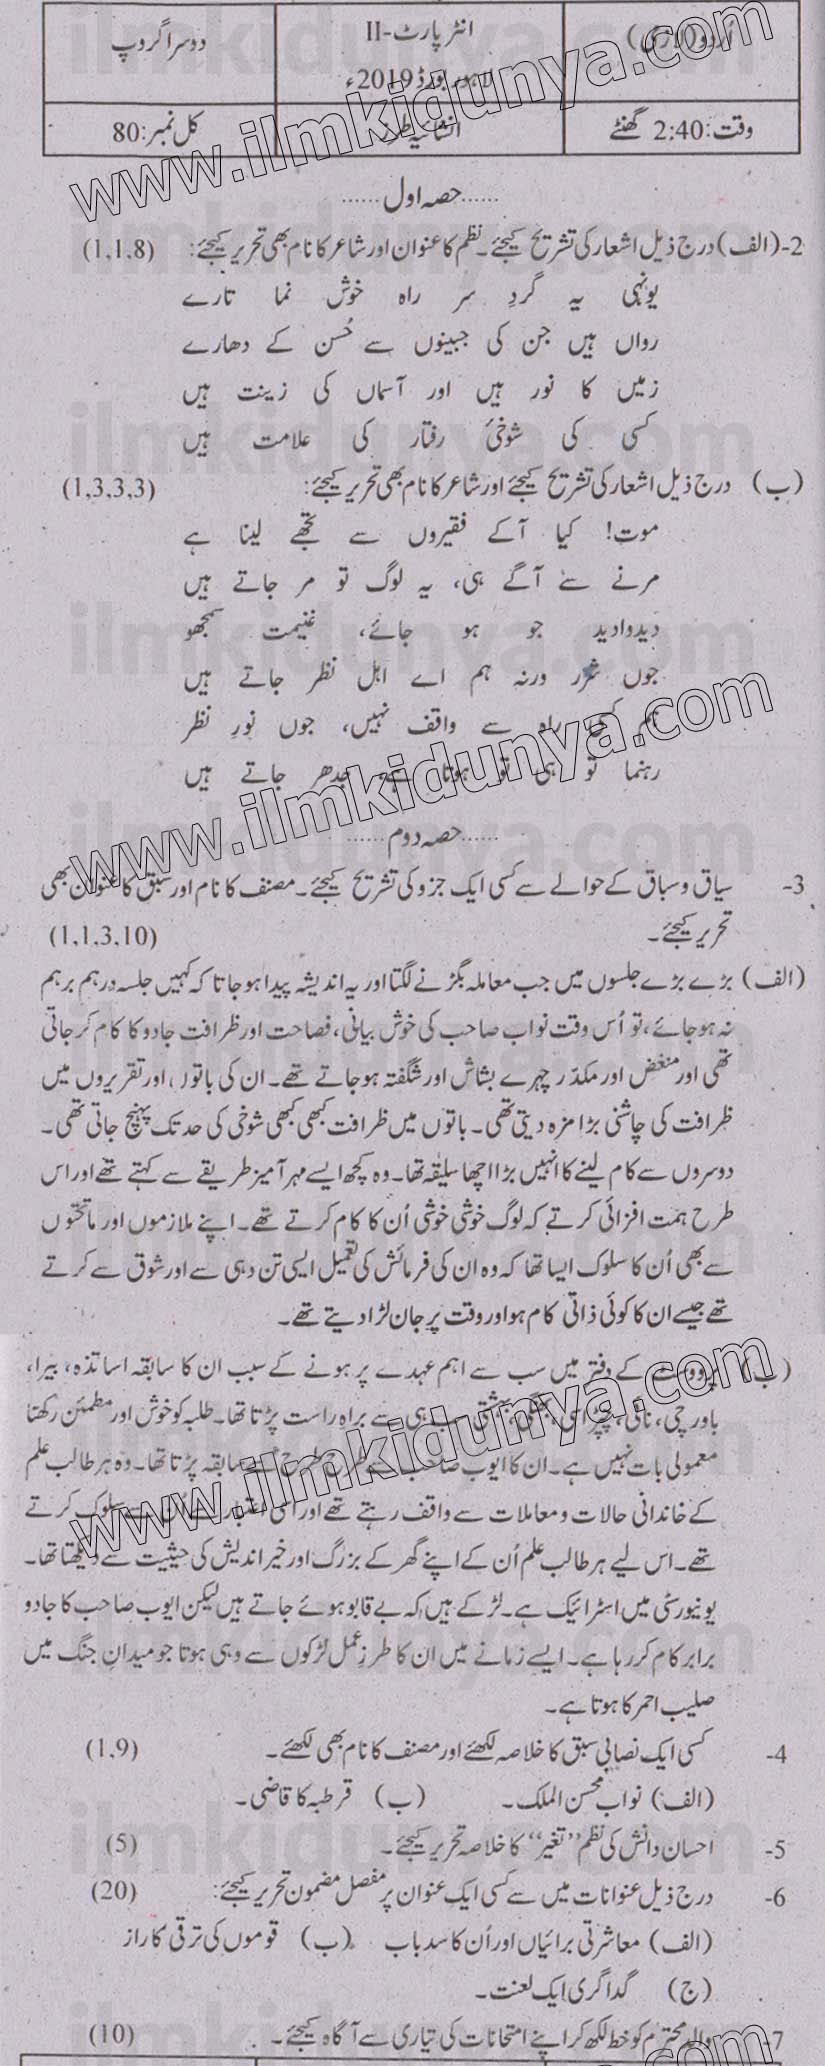 اردو (لازمی) انٹر پارٹ-II دوسرا گروپ
لاہور بورڈ 2019ء
وقت: 2:40 گھنٹے انشائیہ طرز کل نمبر: 80
......حصہ اول......
2-(الف) درج ذیل اشعار کی تشریح کیجئے۔ نظم کا عنوان اور شاعر کا نام بھی تحریر کیجئے: (1,1,8)
یونہی یہ گردِ سرِ راہ خوش نما تارے
رواں ہیں جن کی جبینوں سے حُسن کے دھارے
زمیں کا نور ہیں اور آسماں کی زینت ہیں
کسی کی شوخیٔ رفتار کی علامت ہیں
(ب) درج ذیل اشعار کی تشریح کیجئے اور شاعر کا نام بھی تحریر کیجئے: (1,3,3,3)
موت! کیا آکے فقیروں سے تجھے لینا ہے
مرنے سے آگے ہی، یہ لوگ تو مر جاتے ہیں
دیدوادید جو ہو جائے، غنیمت سمجھو
جوں شرر ورنہ ہم اے اہل نظر جاتے ہیں
ہم کسی راہ سے واقف نہیں، جوں نورِ نظر
رہنما تو ہی تو ہوتا ہے، جدھر جاتے ہیں
......حصہ دوم......
3- سیاق و سباق کے حوالے سے کسی ایک جزو کی تشریح کیجئے۔ مصنف کا نام اور سبق کا عنوان بھی
تحریر کیجئے۔ (1,1,3,10)
(الف) بڑے بڑے جلسوں میں جب معاملہ بگڑنے لگتا اور یہ اندیشہ پیدا ہو جاتا کہ کہیں جلسہ درہم برہم
نہ ہو جائے، تو اُس وقت نواب صاحب کی خوش بیانی، فصاحت اور ظرافت جادو کا کام کر جاتی
تھی اور منغض اور مکدّر چہرے بشاش اور شگفتہ ہو جاتے تھے۔ ان کی باتوں اور تقریروں میں
ظرافت کی چاشنی بڑا مزہ دیتی تھی۔ باتوں میں ظرافت کبھی کبھی شوخی کی حد تک پہنچ جاتی تھی۔
دوسروں سے کام لینے کا انہیں بڑا اچھا سلیقہ تھا۔ وہ کچھ ایسے مہر آمیز طریقے سے کہتے تھے اور اس
طرح ہمت افزائی کرتے کہ لوگ خوشی خوشی اُن کا کام کرتے تھے۔ اپنے ملازموں اور ماتحتوں
سے بھی اُن کا سلوک ایسا تھا کہ وہ ان کی فرمائش کی تعمیل ایسی تن دہی سے اور شوق سے کرتے
تھے جیسے ان کا کوئی ذاتی کام ہو اور وقت پر جان لڑا دیتے تھے۔
(ب) پرووسٹ کے دفتر میں سب سے اہم عہدے پر ہونے کے سبب ان کا سابقہ اساتذہ، بیرا،
باورچی، نائی، چپڑاسی، بھنگی، بہشتی سب ہی سے براہِ راست پڑتا تھا۔ طلبہ کو خوش اور مطمئن رکھنا
معمولی بات نہیں ہے۔ ان کا ایوب صاحب سے طرح طرح سے سابقہ پڑتا تھا۔ وہ ہر طالب علم
کے خاندانی حالات و معاملات سے واقف رہتے تھے اور اسی اعتبار سے اُن سے سلوک کرتے
تھے۔ اس لیے ہر طالب علم اُن کے اپنے گھر کے بزرگ اور خیر اندیش کی حیثیت سے دیکھتا تھا۔
یونیورسٹی میں اسٹرائیک ہے۔ لڑکے ہیں کہ بے قابو ہوئے جاتے ہیں لیکن ایوب صاحب کا جادو
برابر کام کر رہا ہے۔ ایسے زمانے میں ان کا طرزِ عمل لڑکوں سے وہی ہوتا جو میدانِ جنگ میں
صلیب احمر کا ہوتا ہے۔
4- کسی ایک نصابی سبق کا خلاصہ لکھئے اور مصنف کا نام بھی لکھئے۔ (1,9)
(الف) نواب محسن الملک۔ (ب) قرطبہ کا قاضی۔
5- احسان دانش کی نظم "تغیر" کا خلاصہ تحریر کیجئے۔ (5)
6- درج ذیل عنوانات میں سے کسی ایک عنوان پر مفصل مضمون تحریر کیجئے: (20)
(الف) معاشرتی برائیاں اور اُن کا سدباب (ب) قوموں کی ترقی کا راز
(ج) گداگری ایک لعنت۔
7- والد محترم کو خط لکھ کر اپنے امتحانات کی تیاری سے آگاہ کیجئے۔ (10)
www.ilmkidunya.com
www.ilmkidunya.com
www.ilmkidunya.com